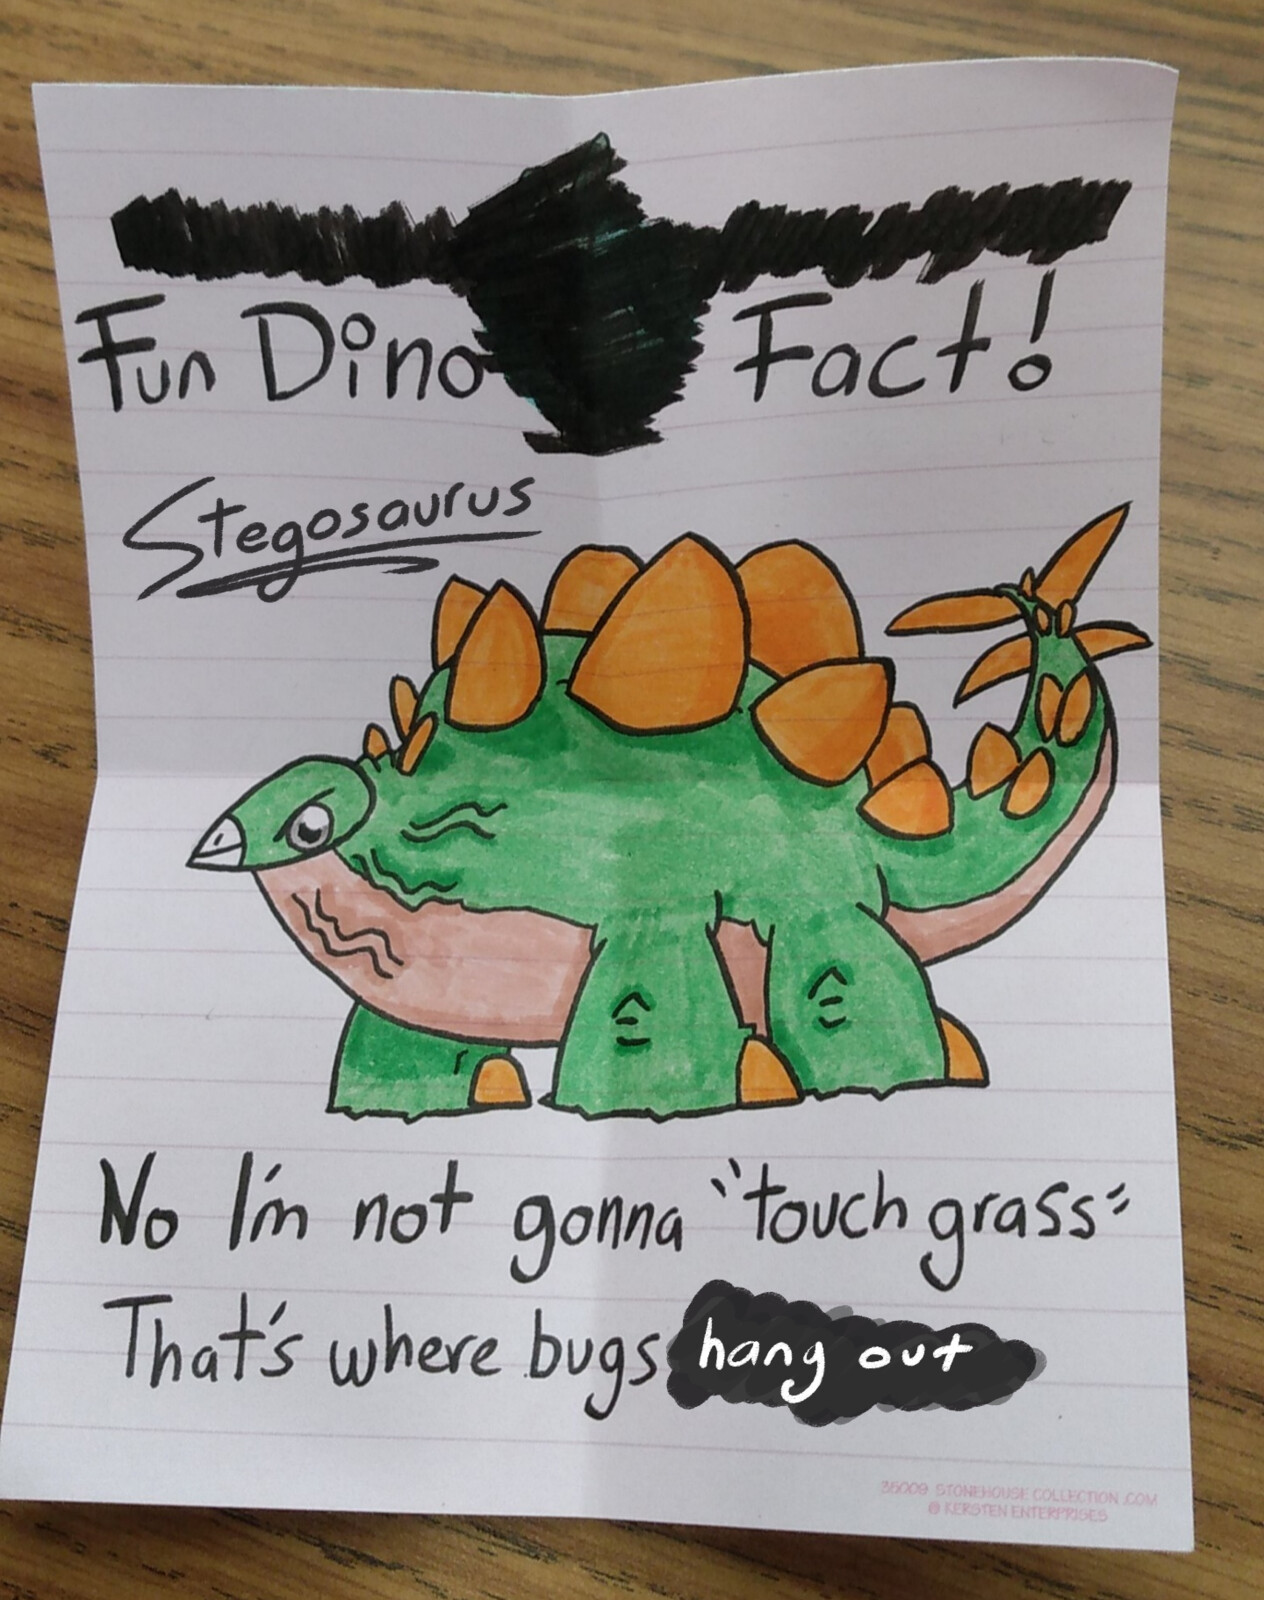 Fun Dino Fact!
Stegosaurus
No I'm not gonna "touch grass"
That's where bugs hang out
35009 STONEHOUSE COLLECTION .COM
@ KERSTEN ENTERPRISES